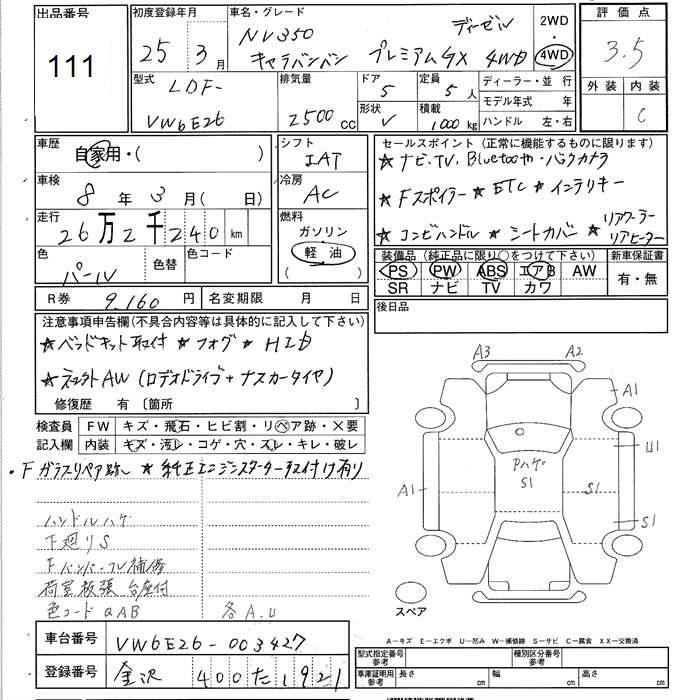 出品番号
111
初度登録年月
25年 3月
車名・グレード
NV350 ディーゼル
キャラバンバン プレミアムGX 4WD
2WD
4WD
評価点
3.5
外装 内装
C
型式
LDF-
VW6E26
排気量
2500 CC
ドア
5
定員
5人
形状
V
積載
1000 kg
ディーラー・並 行
モデル年式 年
ハンドル 左・右
車歴
自家用・( )
シフト
IAT
車検
8年 3月 ( 日)
冷房
AC
走行
26万2千240km
燃料
ガソリン
軽油
( )
色
パール
色替
色コード
R券 9,160円
名変期限 月 日
セールスポイント (正常に機能するものに限ります)
★ナビ、TV、Bluetooth・バックカメラ
★Fスポイラー ★ETC ★インテリキー
★コンビハンドル ★シートカバー ★リアクーラー
リアヒーター
装備品 (純正品に限り○をつけて下さい)
PS PW ABS エアB AW
SR ナビ TV カワ
新車保証書
有・無
後日品
注意事項申告欄(不具合内容等は具体的に記入して下さい)
★ベッドキット取付 ★フォグ ★HID
★社外AW (ロデオドライブ+ナスカータイヤ)
修復歴 有 〔箇所 〕
検査員
記入欄
FW キズ・飛石・ヒビ割・リペア跡・X要
内装 キズ・汚レ・コゲ・穴・スレ・キレ・破レ
・Fガラスリペア跡 ★純正エンジンスターター取付け有り
ハンドルハゲ
下廻りS
Fバンパーフレ補修
荷室板張、台座付
色コードQAB
各A.U
A3 A2
A1
U1
Pハゲ
S1
S1
A1
S1
スペア
A-キズ E-エクボ U-凹み W-補修跡 S-サビ C-腐食 XX-交換済
車台番号
VW6E26-003427
登録番号
金沢 400た1921
型式指定番号
参考
種別区分番号
参考
車庫証明用
参考
長さ cm
幅 cm
高さ cm